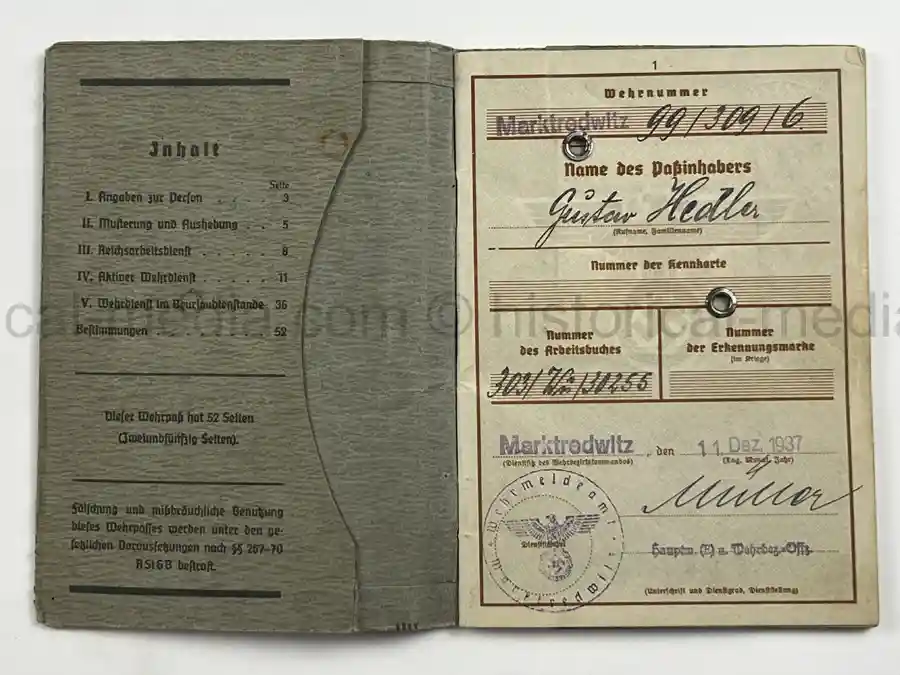 Inhalt
Seite
I. Angaben zur Person . . . . 3
II. Musterung und Aushebung . . 5
III. Reichsarbeitsdienst . . . . . . 8
IV. Aktiver Wehrdienst . . . . . 11
V. Wehrdienst im Beurlaubtenstande 36
Bestimmungen . . . . . . . . 52
Dieser Wehrpaß hat 52 Seiten
(Zweiundfünfzig Seiten).
Fälschung und mißbräuchliche Benutzung
dieses Wehrpasses werden unter den ge-
setzlichen Voraussetzungen nach §§ 267-70
RStGB bestraft.
1
Wehrnummer
Marktredwitz 99/309/6
Name des Paßinhabers
Gustav Hedler
(Rufname, Familienname)
Nummer der Kennkarte
Nummer
des Arbeitsbuches
Nummer
der Erkennungsmarke
(im Kriege)
303/Wu/30255
Marktredwitz, den 11. Dez. 1937
(Dienstsitz des Wehrbezirkskommandos) (Tag, Monat, Jahr)
Müller
Wehrmeldeamt Marktredwitz
Dienststempel
Hauptm. (E) u. Wehrbez.-Offz.
(Unterschrift und Dienstgrad, Dienststellung)
© historical-media